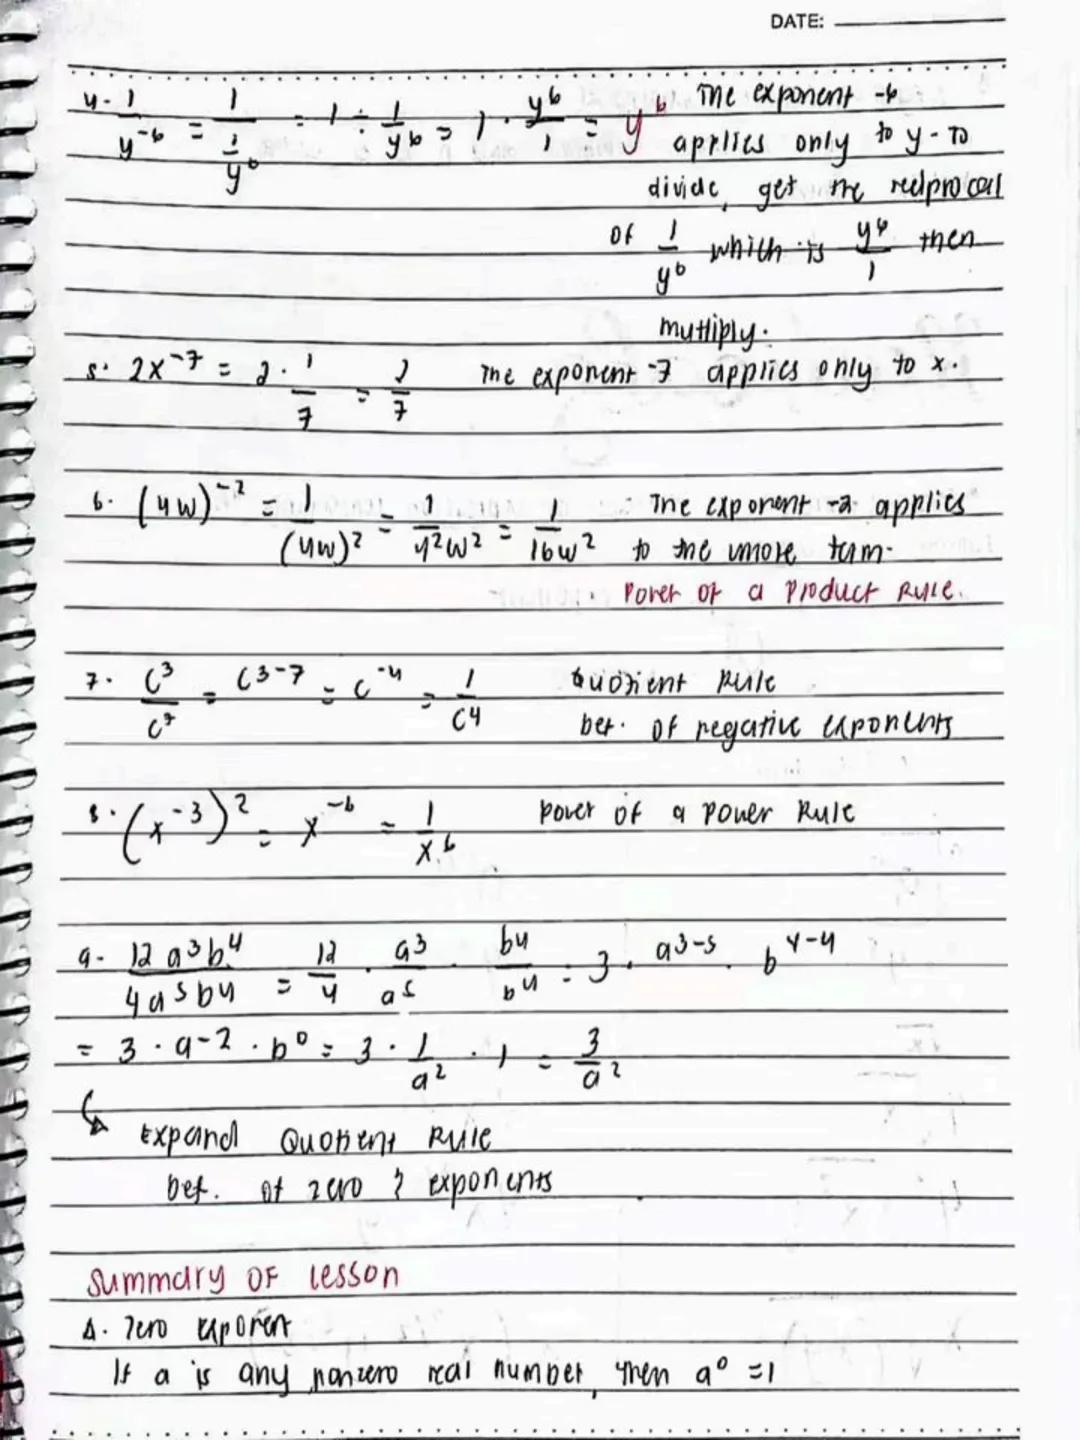 DATE:
4. 1/y^-6 = 1/(1/y^6) = 1 ÷ 1/y^6 = 1 · y^6/1 = y^6 The exponent -6
applies only to y - To
divide, get the reciprocal
of 1/y^6 which is y^6/1 then
multiply.
5. 2x^-7 = 2 · 1/7 = 2/7 The exponent -7 applies only to x.
6. (4w)^-2 = 1/(4w)^2 = 1/4^2w^2 = 1/16w^2 The exponent -2 applies
to the whole term.
Power of a Product Rule.
7. c^3/c^7 = c^3-7 = c^-4 = 1/c^4 Quotient Rule
Def. of negative exponents
8. (x^-3)^2 = x^-6 = 1/x^6 Power of a Power Rule
9. 12a^3b^4/4a^5b^4 = 12/4 · a^3/a^5 · b^4/b^4 = 3 · a^3-5 · b^4-4
= 3 · a^-2 · b^0 = 3 · 1/a^2 · 1 = 3/a^2
↳ Expand Quotient Rule
Def. of zero & exponents
Summary of lesson
A. Zero exponent
If a is any nonzero real number, then a^0 = 1